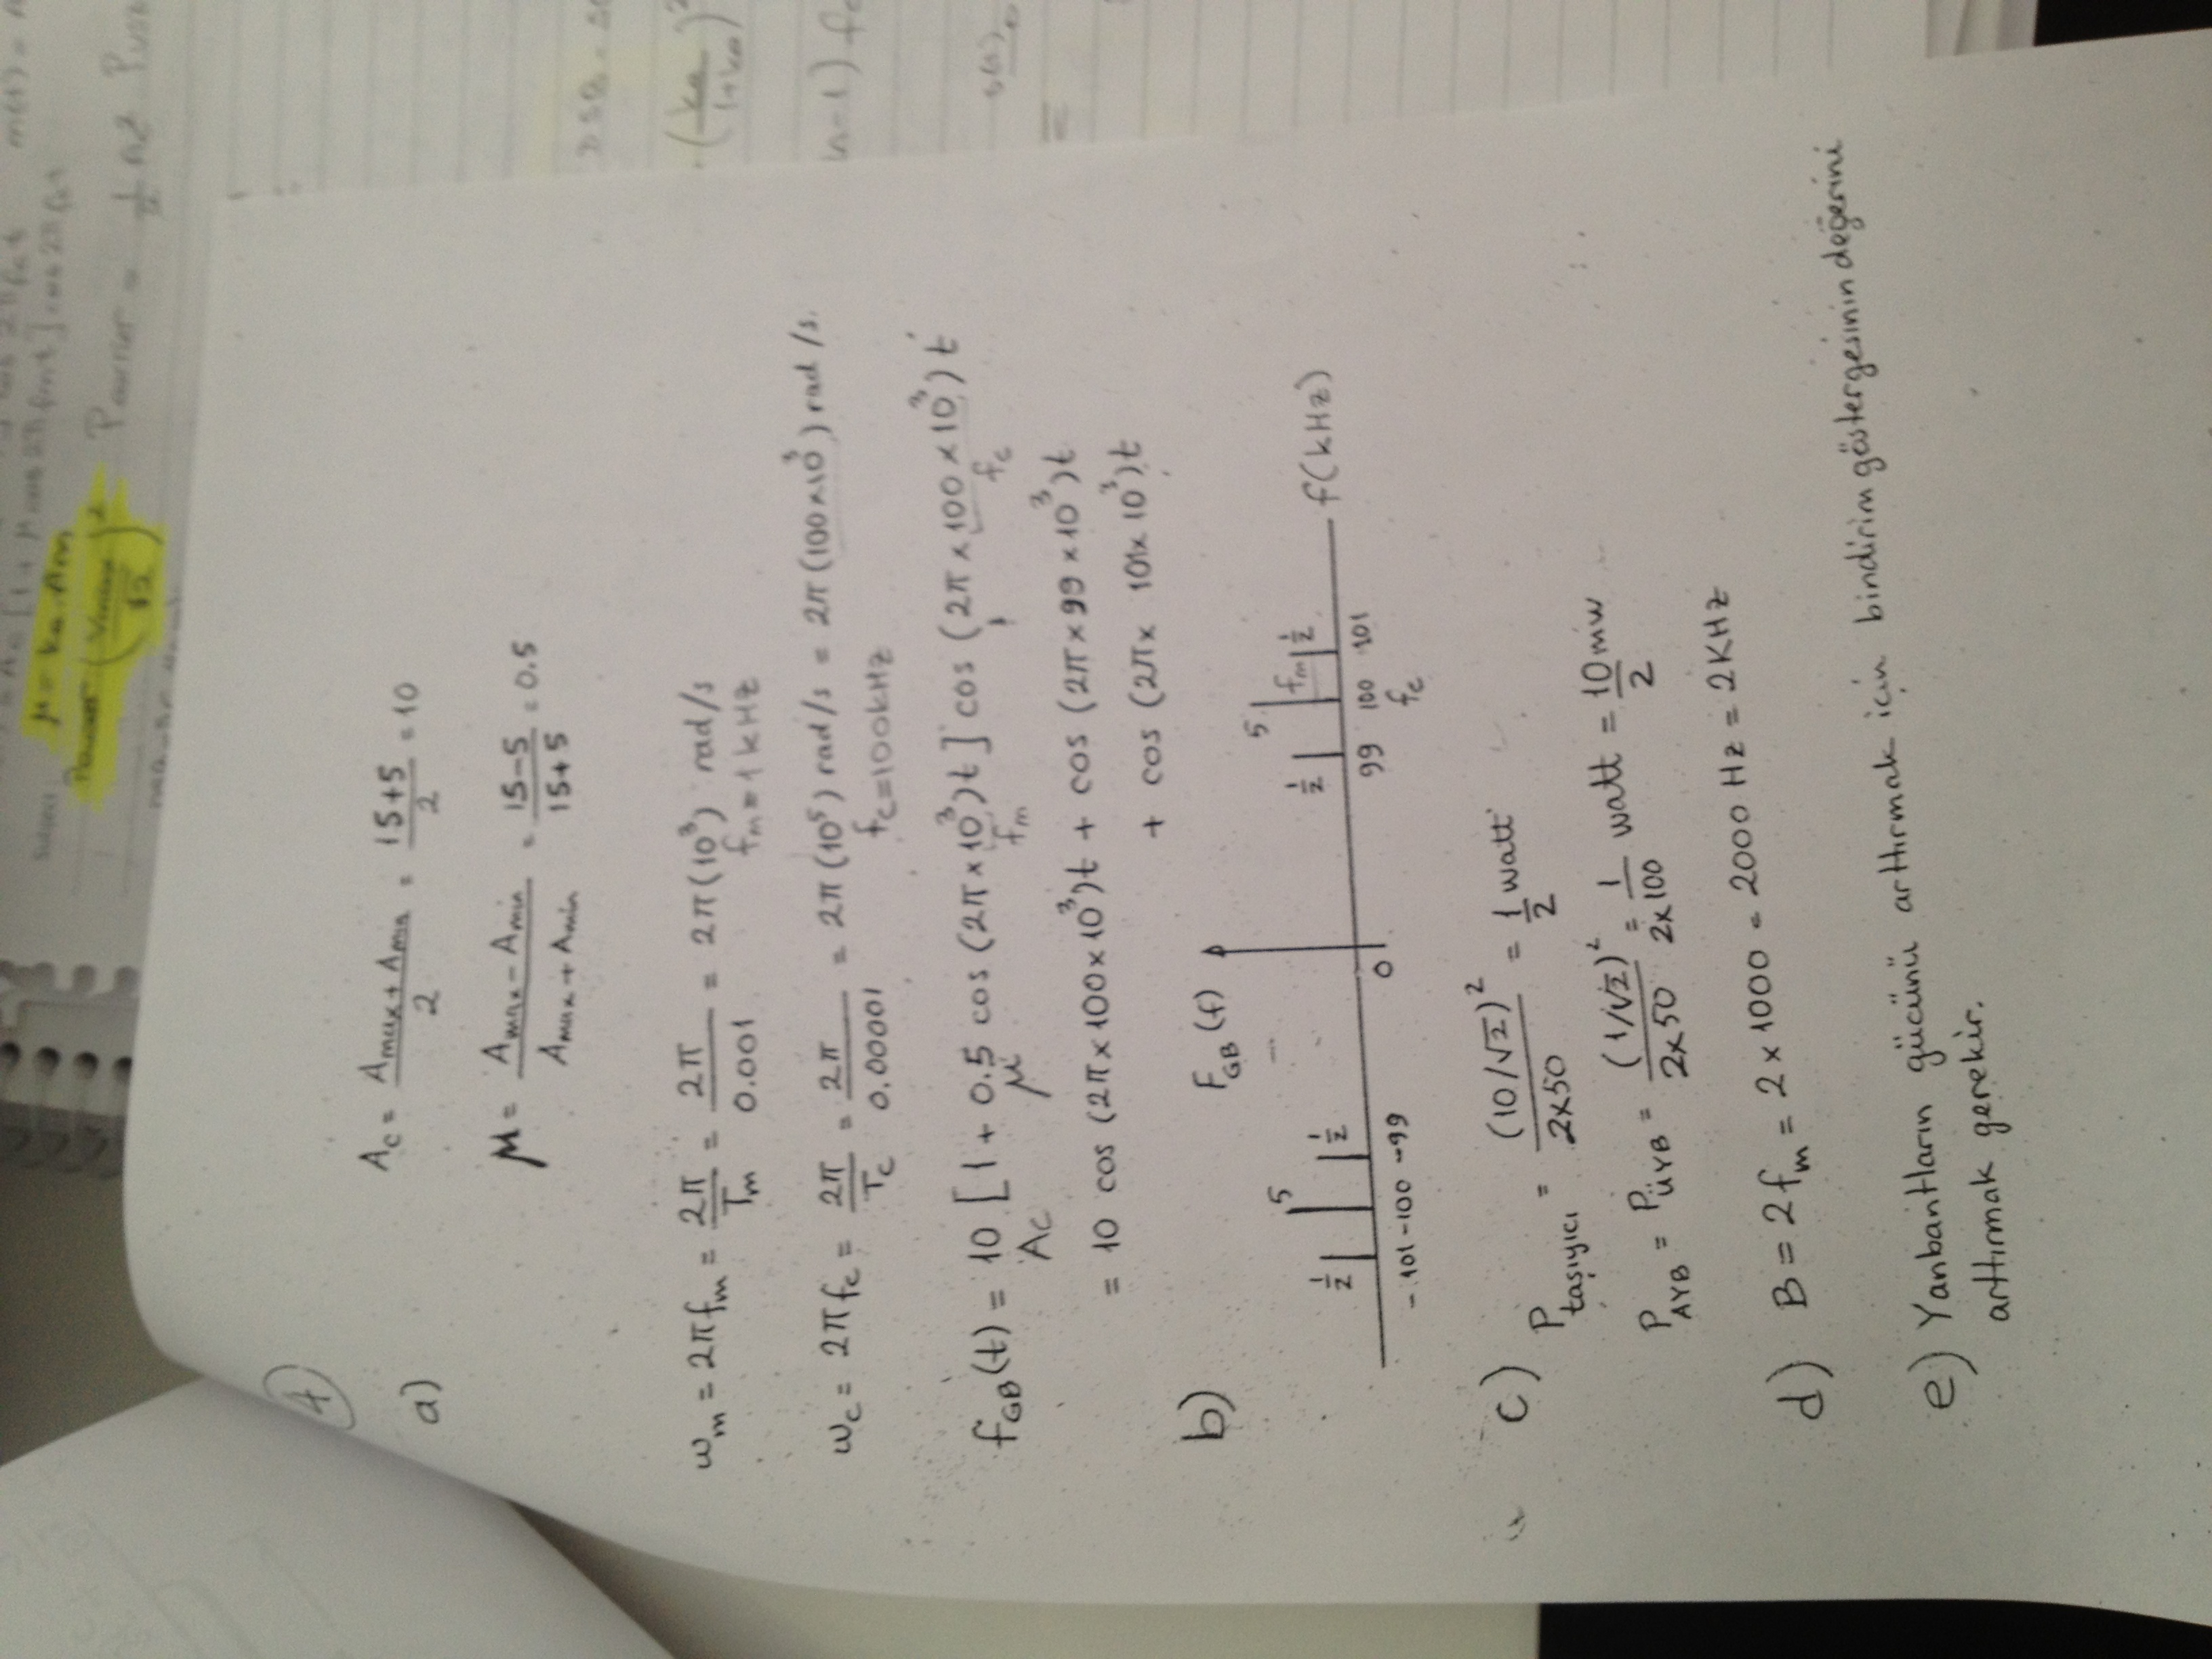 = Ac [1 + μ cos 2πfmt] cos 2πfct
m(t) = A
Subject:
μ = ka.Am
Power (Vmax/√2)²
Pcarrier = 1/2 Ac²
DSB-SC
(ka/1+ka)²
(n-1) fc
s(t)
=
4
a)
Ac = Amax + Amin / 2 = 15+5 / 2 = 10
μ = Amax - Amin / Amax + Amin = 15-5 / 15+5 = 0.5
ωm = 2πfm = 2π/Tm = 2π/0.001 = 2π(10³) rad/s
fm = 1 kHz
ωc = 2πfc = 2π/Tc = 2π/0.00001 = 2π(10⁵) rad/s = 2π(100×10³) rad/s.
fc=100kHz
fGB(t) = 10 [1 + 0.5 cos (2π×10³)t] cos (2π×100×10³)t
Ac μ fm fc
= 10 cos (2π×100×10³)t + cos (2π×99×10³)t
+ cos (2π× 101×10³)t
b)
FGB(f)
1/2 5 1/2 1/2 5 fm 1/2 f(kHz)
-101 -100 -99 0 99 100 101
fc
c) Ptaşıyıcı = (10/√2)² / 2×50 = 1/2 watt
PAYB = PÜYB = (1/√2)² / 2×50 = 1 / 2×100 watt = 10/2 mw
d) B = 2fm = 2×1000 = 2000 Hz = 2KHz
e) Yanbantların gücünü arttırmak için bindirim göstergesinin değerini
arttırmak gerekir.